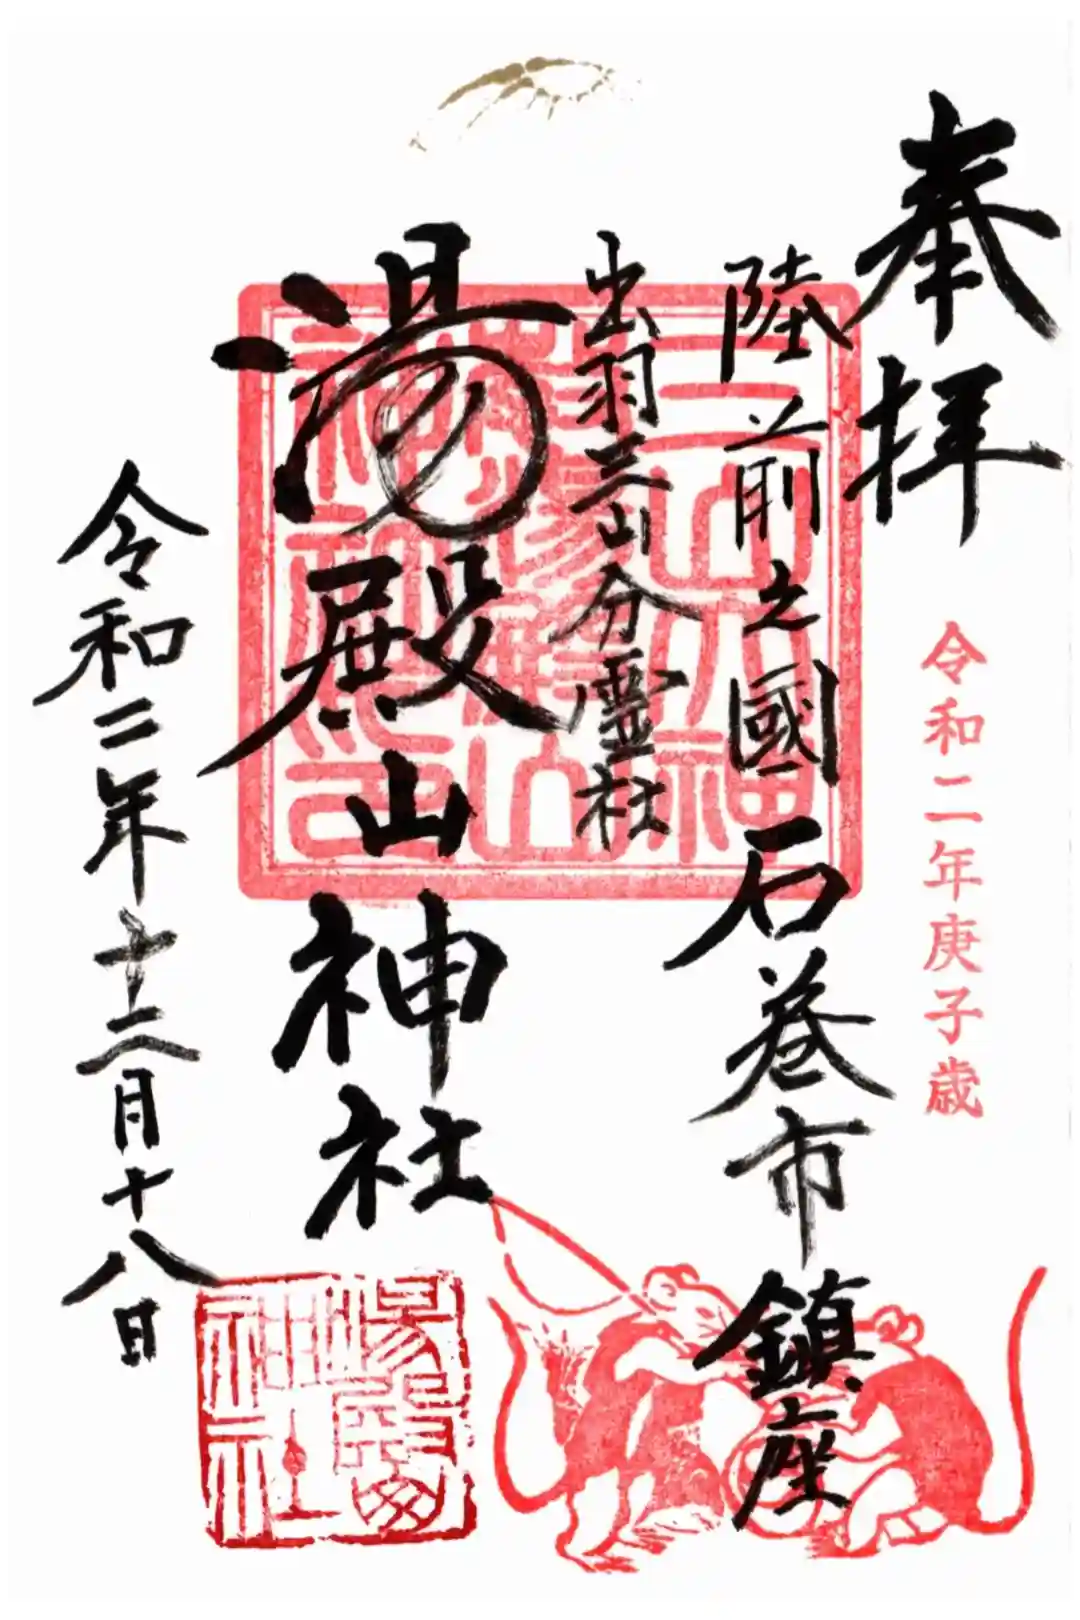 奉拝
令和二年庚子歳
陸前之國石巻市鎮座
出羽三山分霊社
湯殿山神社
令和二年十二月十八日
湯殿山
神社